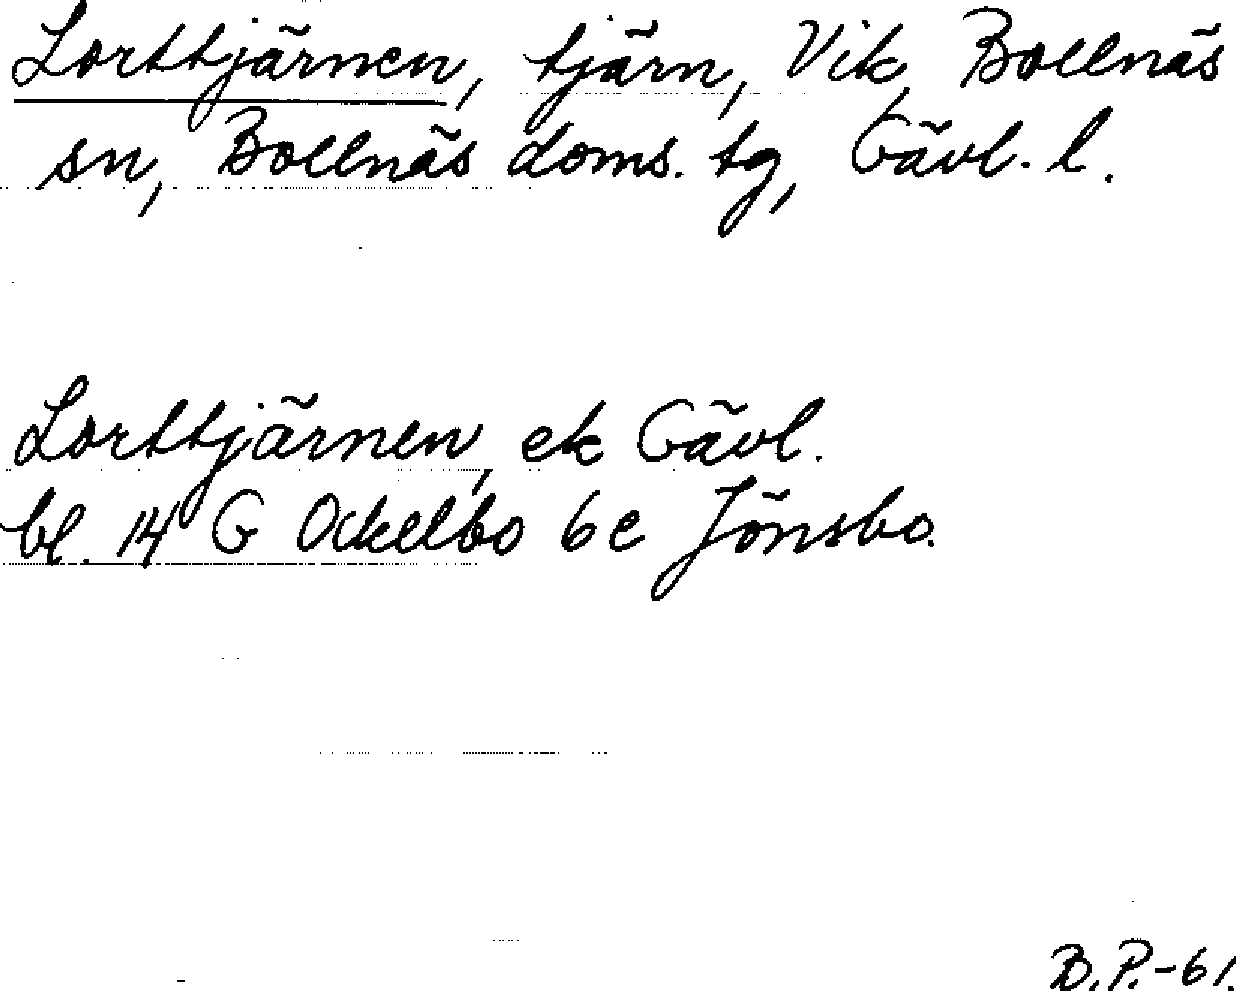 Lorttjärnen, tjärn, Vik, Bollnäs
sn, Bollnäs doms. tg, Gävl. l.
Lorttjärnen, ek Gävl.
bl. 14 G Ockelbo 6e Jönsbo.
B.P.-61.